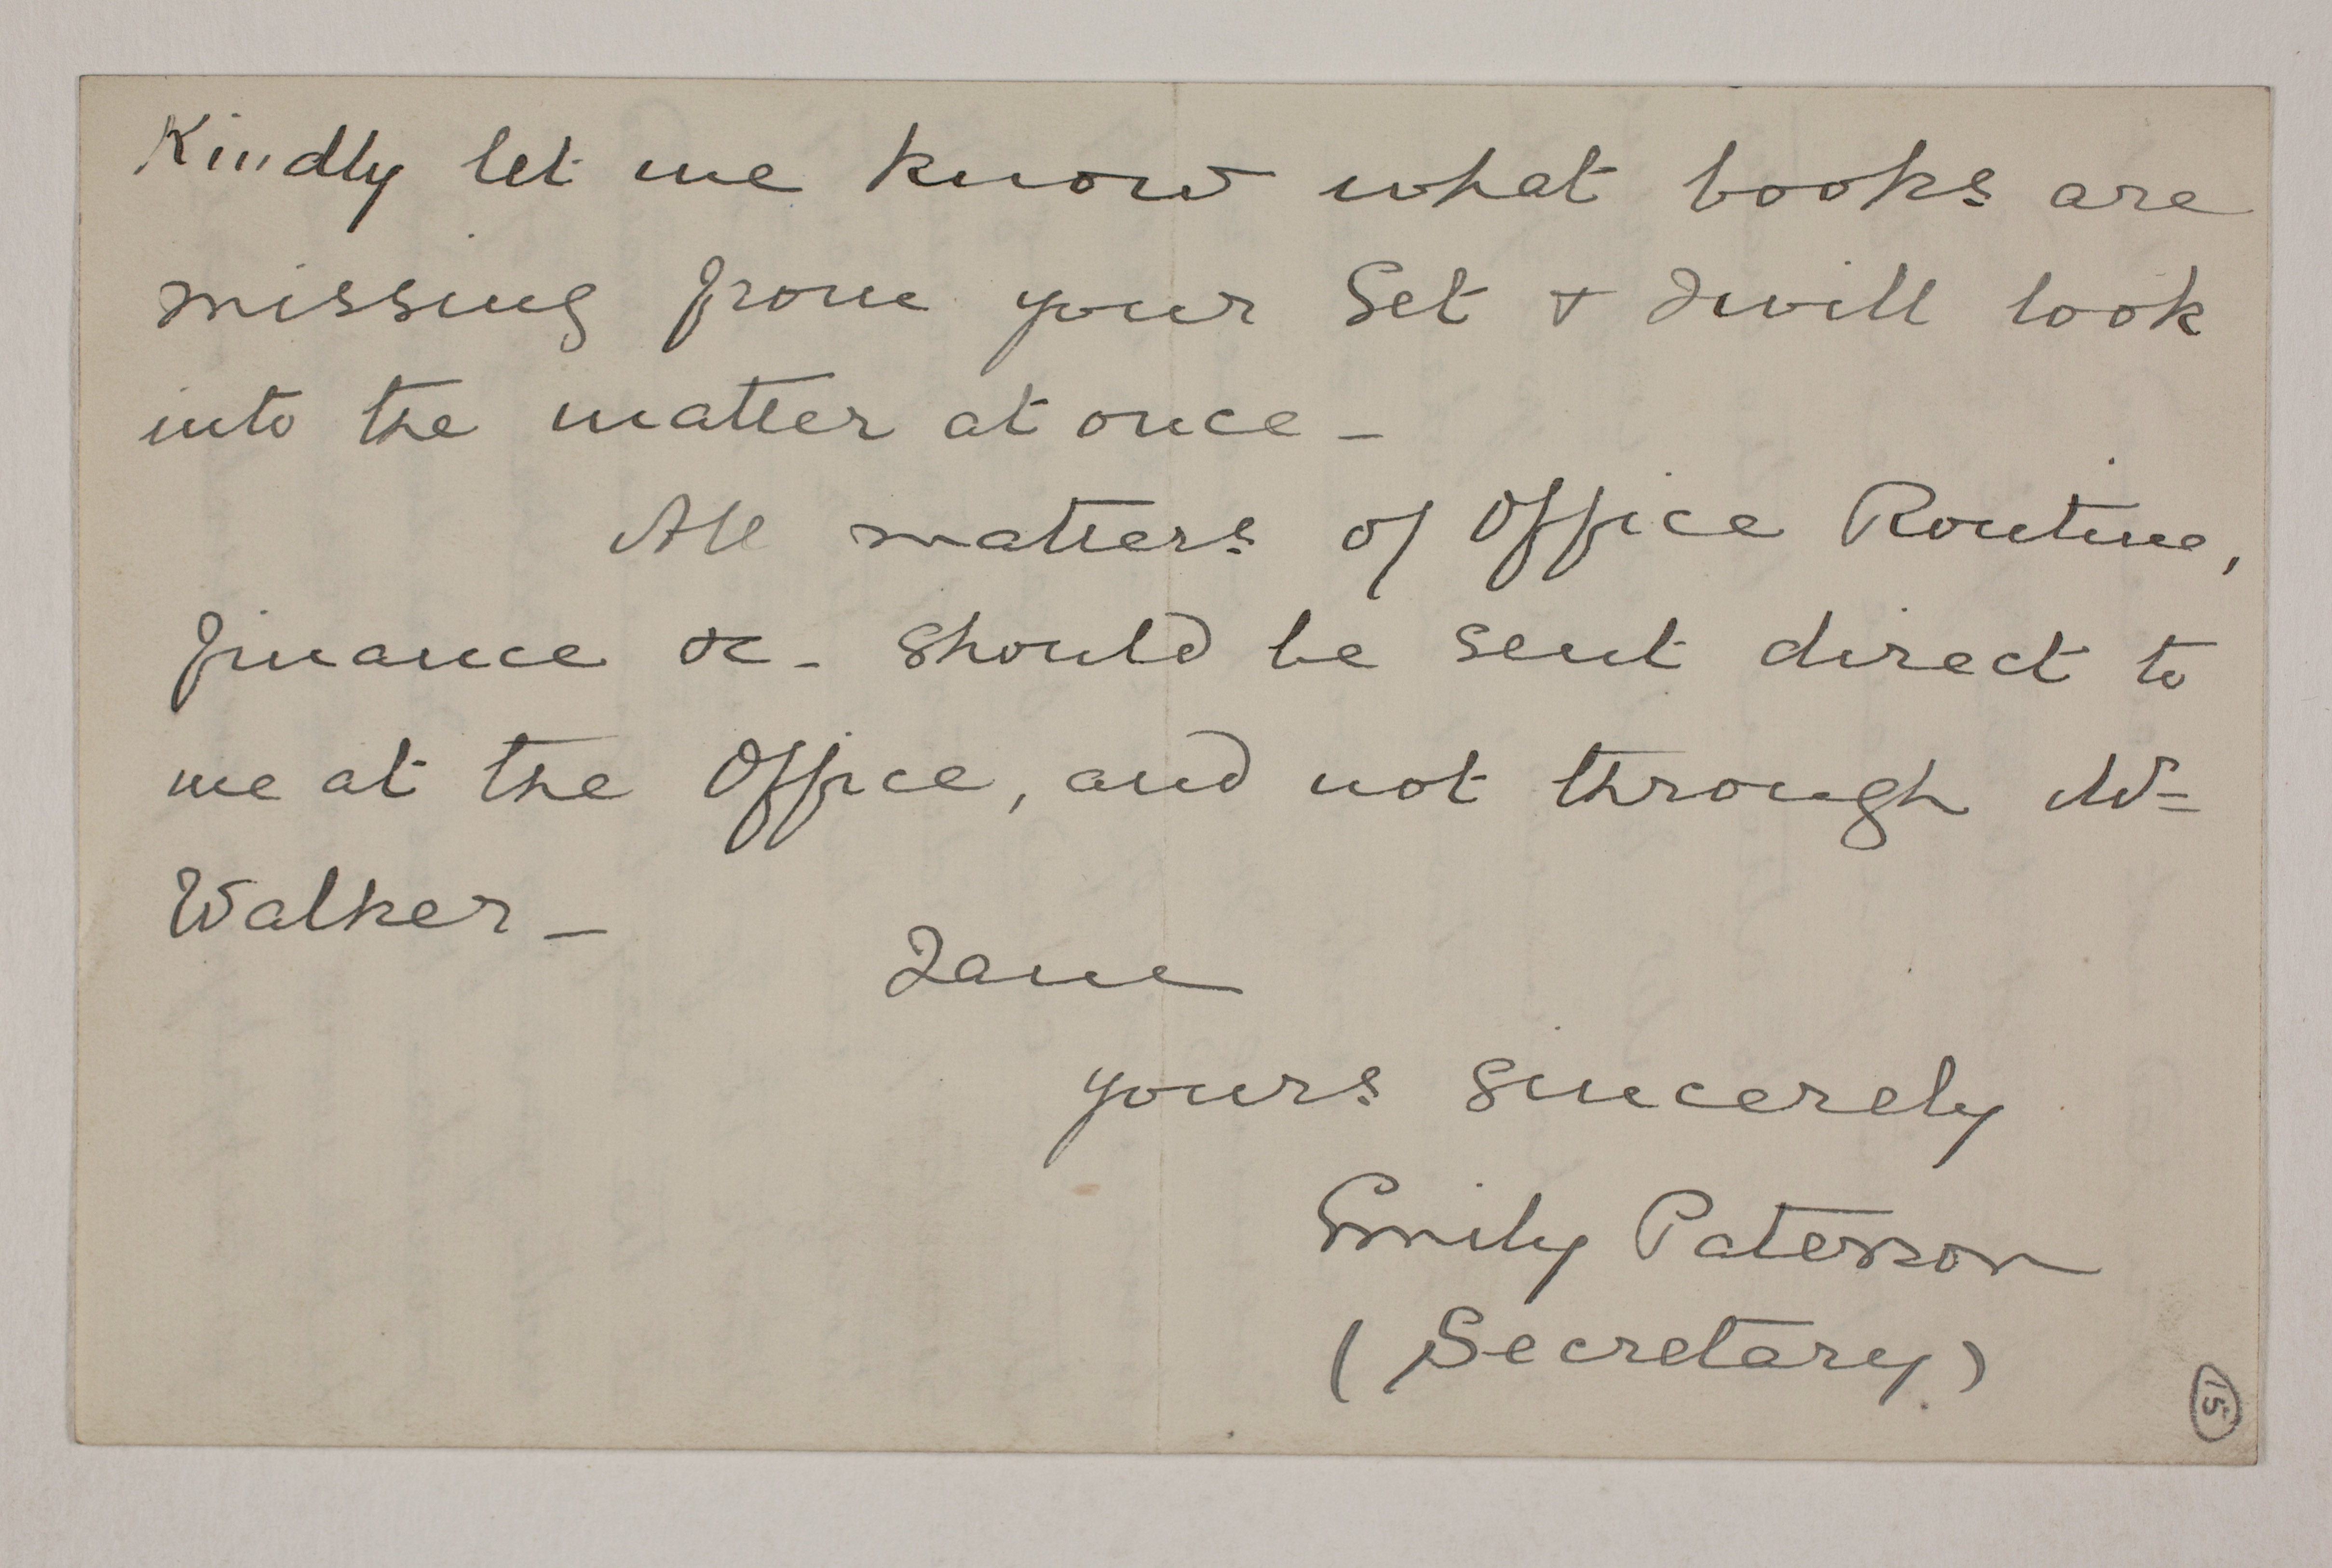 Kindly let me know what books are
missing from your Set & I will look
into the matter at once -
All matters of Office Routine,
finance &c - should be sent direct to
me at the Office, and not through Mr
Walker -
I am
yours sincerely
Emily Paterson
(Secretary)
15